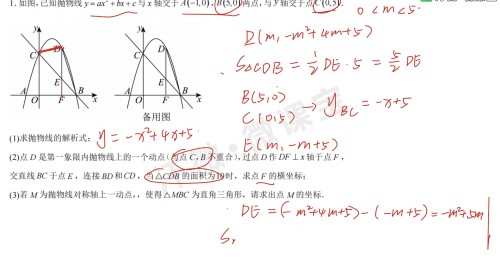 1. 如图,已知抛物线 y=ax²+bx+c 与 x 轴交于 A(-1,0), B(5,0)两点,与 y 轴交于点 C(0,5).
0<m<5
D(m, -m²+4m+5)
S△CDB = 1/2 DE·5 = 5/2 DE
B(5,0)
C(0,5) → y_BC = -x+5
E(m, -m+5)
y
C D
E
A O F B x
y
C D
E
A O F B x
备用图
(1)求抛物线的解析式; y=-x²+4x+5
(2)点 D 是第一象限内抛物线上的一个动点(与点 C, B 不重合),过点 D 作 DF⊥x 轴于点 F,
交直线 BC 于点 E,连接 BD 和 CD,当△CDB 的面积为10时,求点 F 的横坐标;
(3)若 M 为抛物线对称轴上一动点,,使得△MBC 为直角三角形,请求出点 M 的坐标.
DE = (-m²+4m+5)-(-m+5) = -m²+5m
S